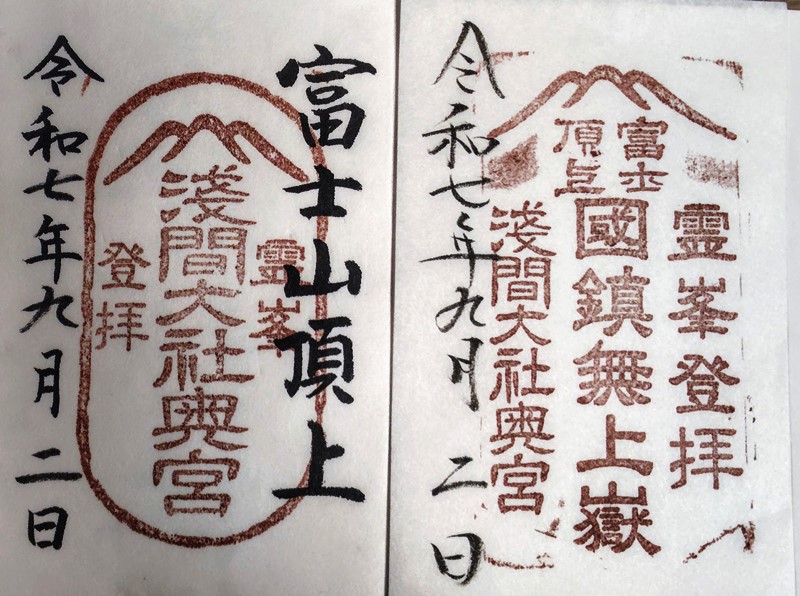 霊峯登拝
富士
頂上
國鎮無上嶽
淺間大社奥宮
令和七年九月二日
富士山頂上
霊峯
淺間大社奥宮
登拝
令和七年九月二日